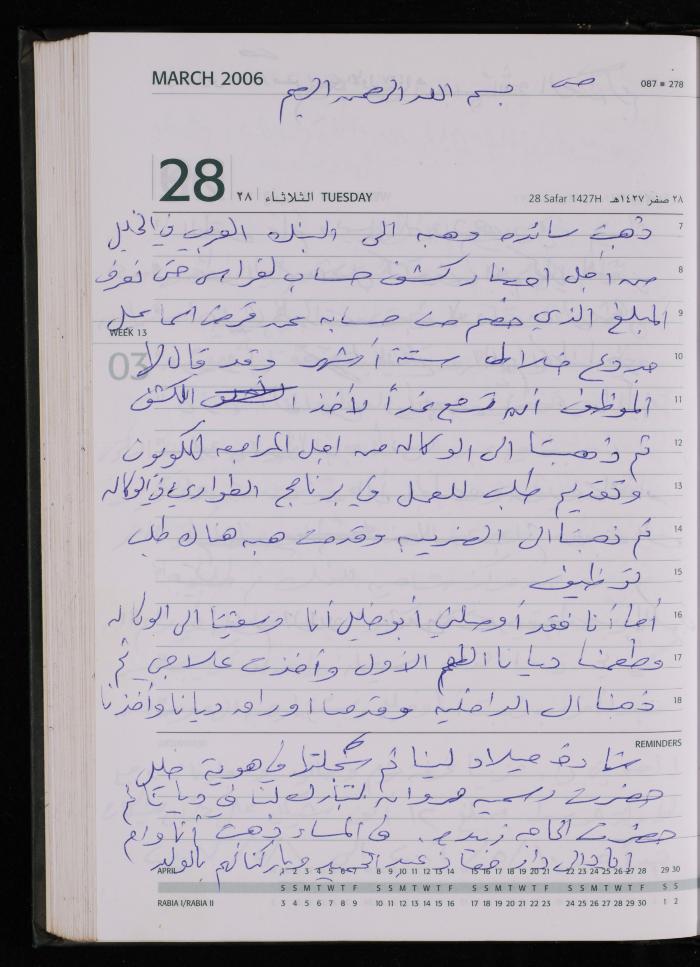 MARCH 2006
087 ■ 278
بسم الله الرحمن الرحيم
28 ٢٨ الثلاثاء TUESDAY
28 Safar 1427H ٢٨ صفر ١٤٢٧هـ
7 ذهبت سائده وهبه الى البنك العربي في الخليل
8 من اجل احضار كشف حساب لفراس حتى نعرف
9 المبلغ الذي خصم من حسابه عن قرض اسماعيل
WEEK 13
03
10 جدوع خلال ستة أشهر وقد قال لها
11 الموظف أن ترجع غداً لأخذ الكشف
12 ثم ذهبتا الى الوكاله من اجل المراجعه للكوبون
13 وتقديم طلب للعمل في برنامج الطوارئ في الوكاله
14 ثم ذهبتا ال الضريبه وقدمت هبه هناك طلب
15 توظيف
16 أما أنا فقد أوصلني أبو خليل أنا و الى الوكاله
17 وطعمنا ديانا الطعم الأول وأخذت علاجي ثم
18 ذهبنا ال الداخليه وقدمنا اوراق ديانا وأخذنا
REMINDERS
شهادة ميلاد لينا ثم سجلتها في هوية خليل
حضرت رسميه مروان لتبارك لنا في ديانا ثم
حضرت الحاجه زينب. في المساء ذهبت أنا وام
الى دار عبد الحميد وباركنالهم بالولد
APRIL 1 2 3 4 5 6 7 8 9 10 11 12 13 14 15 16 17 18 19 20 21 22 23 24 25 26 27 28 29 30
S S M T W T F S S M T W T F S S M T W T F S S M T W T F S S
RABIA I/RABIA II 3 4 5 6 7 8 9 10 11 12 13 14 15 16 17 18 19 20 21 22 23 24 25 26 27 28 29 30 1 2